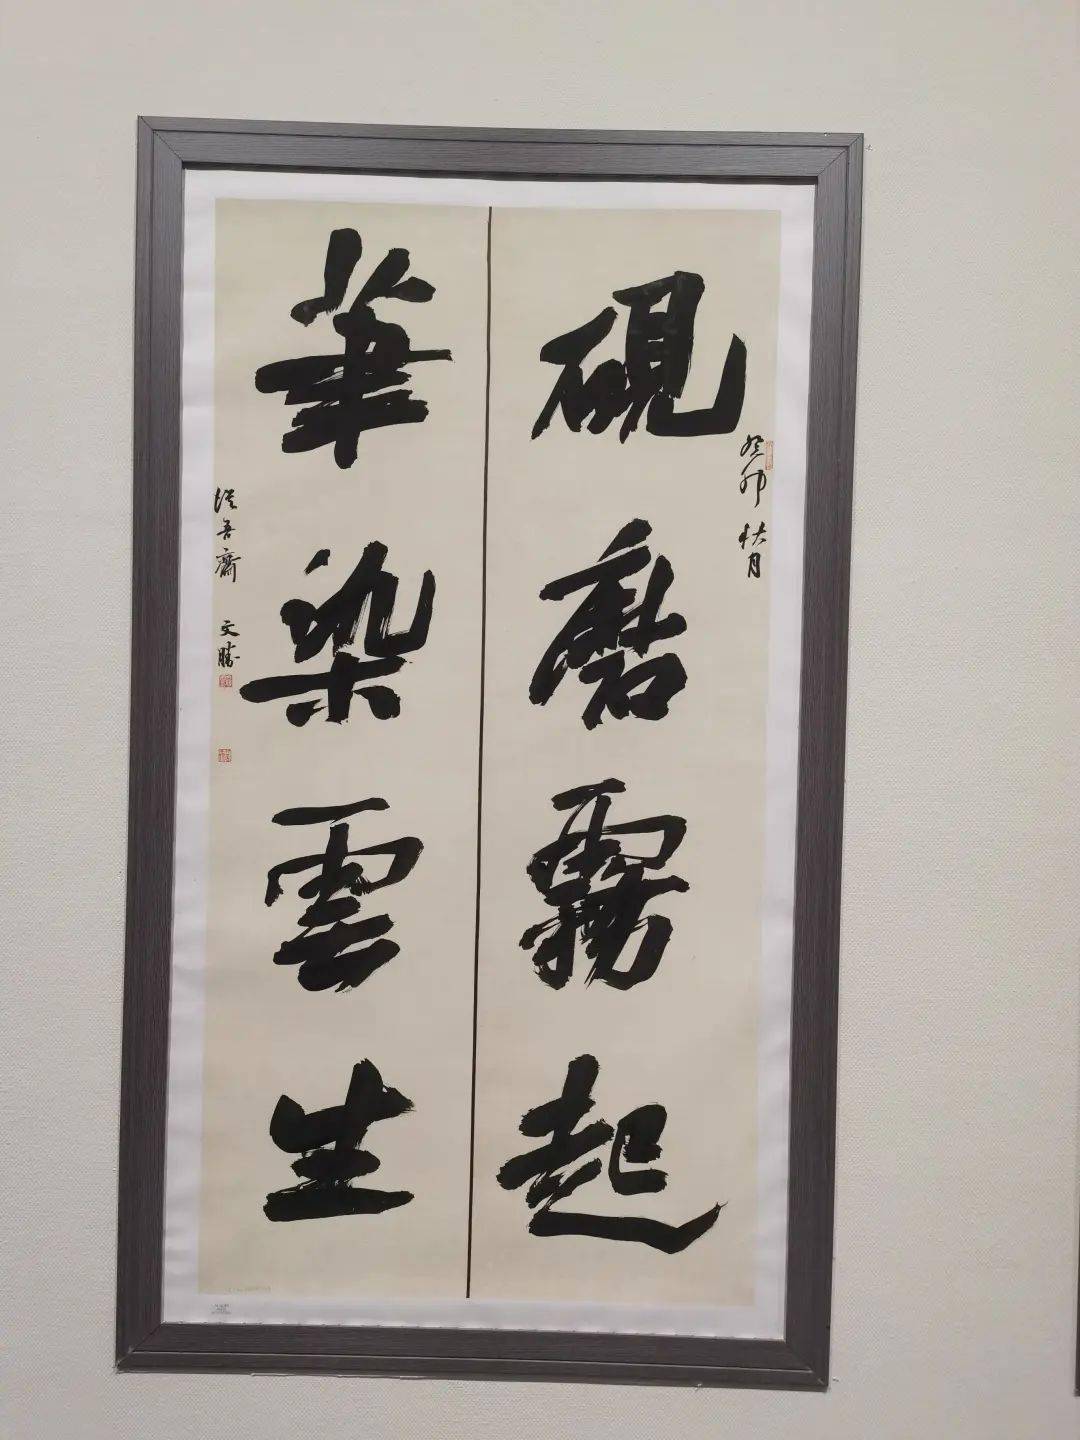 癸卯秋月
硯磨霧起
筆染雲生
從吾齋 文勝